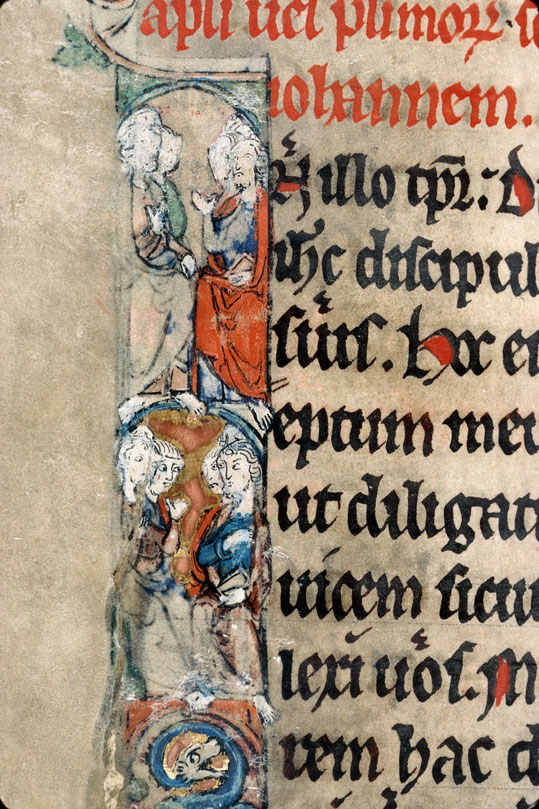 apli uel plimorum s
iohannem.
N illo tpr: Di
ihc discipul
suis. hoc est
eptum meu
ut diligati
uicem sicut
lexi uos. M
rem hac di